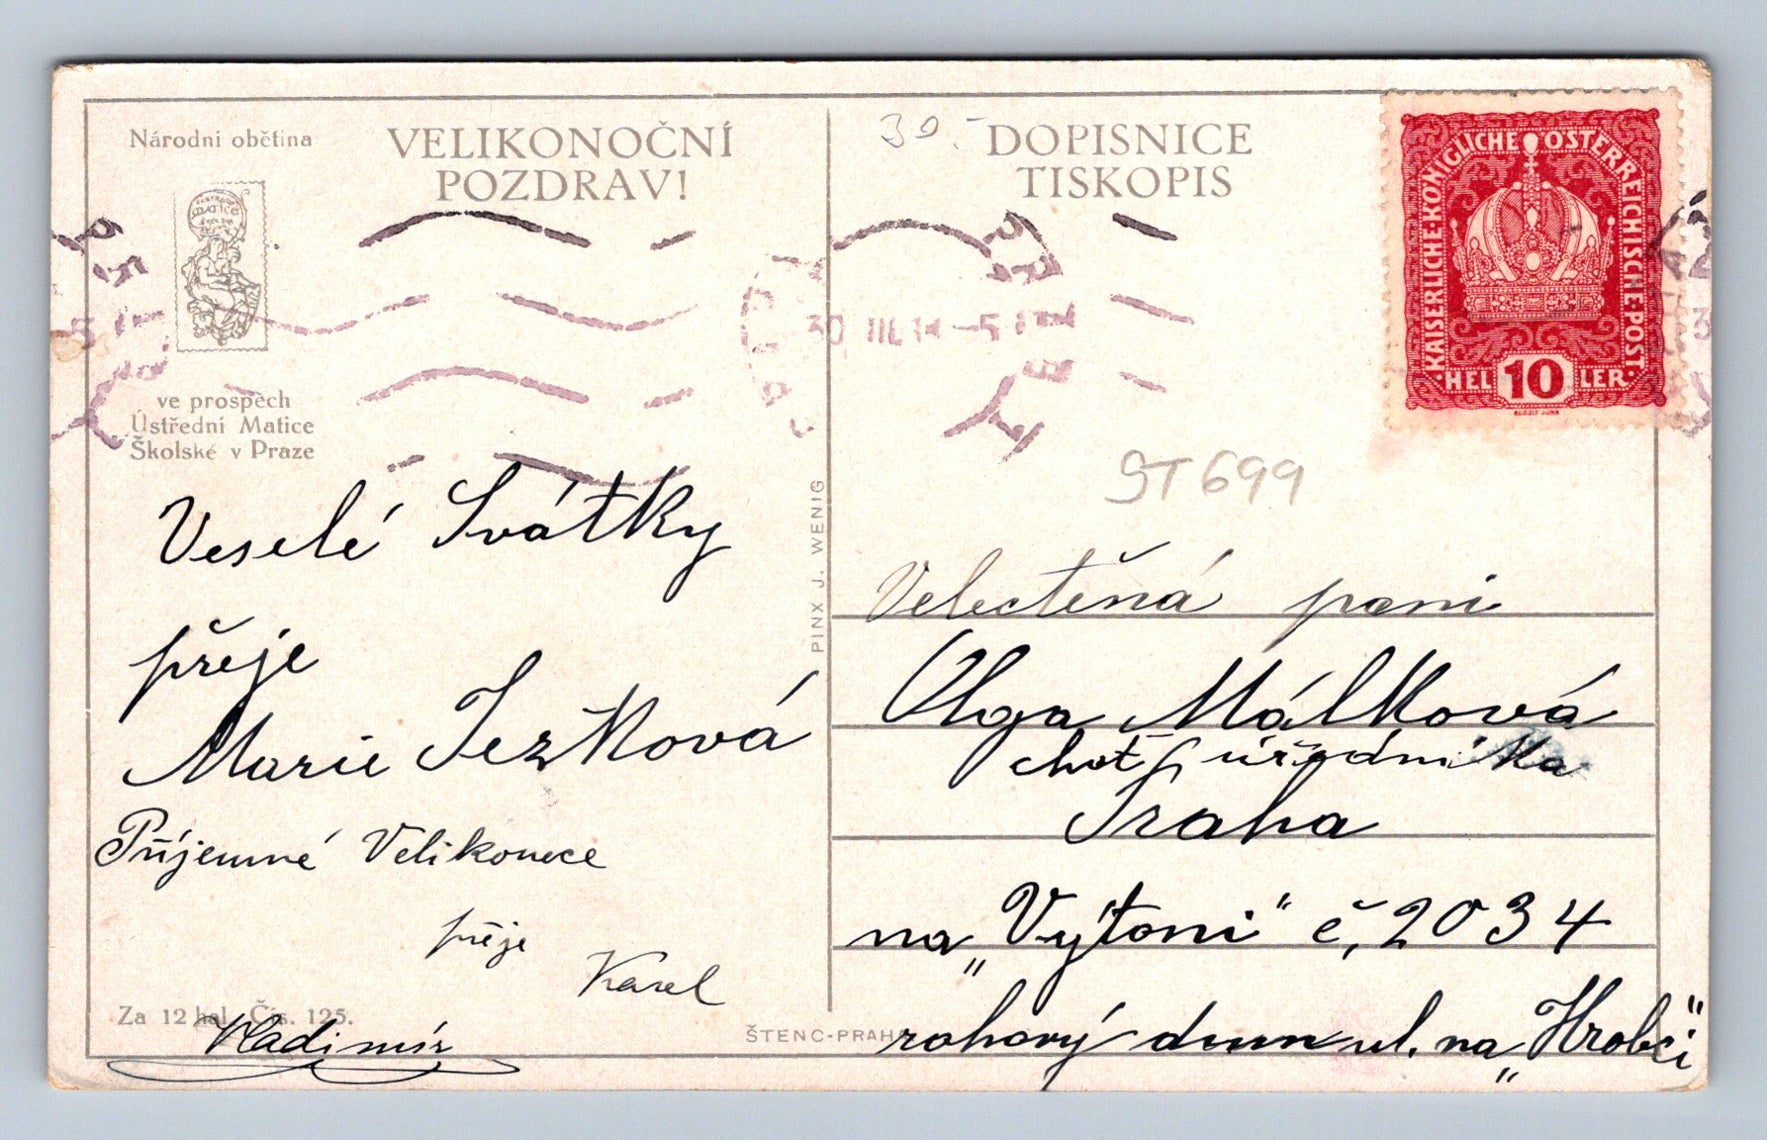 Národní obětina
VELIKONOČNÍ
POZDRAV!
MATICE
ve prospěch
Ústřední Matice
Školské v Praze
Veselé Svátky
přeje
Marie Ježková
Příjemné Velikonoce
přeje
Karel
Vladimír
Za 12 hal. Čís. 125.
PINX J. WENIG
ŠTENC-PRAHA
30.-
DOPISNICE
TISKOPIS
KAISERLICHE-KÖNIGLICHE ÖSTERREICHISCHE POST
HELLER
10
30. III. 1 -5
ST699
Velectěná paní
Olga Málková
choť úředníka
Praha
na „Výtoni“ č. 2034
rohový dům ul. na „Hrobci“